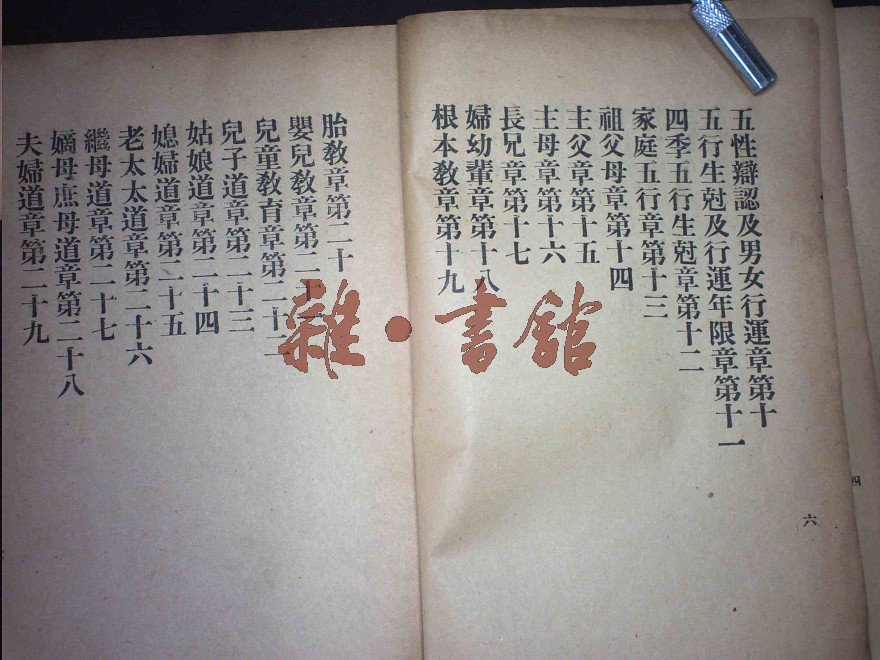 五性辯認及男女行運章第十
五行生尅及行運年限章第十一
四季五行生尅章第十二
家庭五行章第十三
祖父母章第十四
主父章第十五
主母章第十六
長兄章第十七
婦幼輩章第十八
根本敎章第十九
六
四
胎敎章第二十
嬰兒敎章第二十一
兒童敎育章第二十二
兒子道章第二十三
姑娘道章第二十四
媳婦道章第二十五
老太太道章第二十六
繼母道章第二十七
嫡母庶母道章第二十八
夫婦道章第二十九
雜·書館